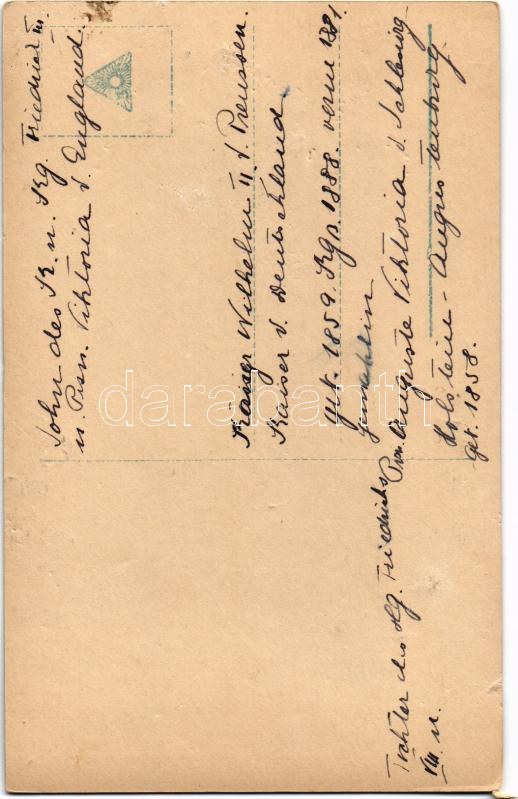 Sohn des K. u. Kg. Friedrich III.
u. Przn. Viktoria v. England.
Kaiser Wilhelm II v. Preussen.
Kaiser v. Deutschland
gek. 1859. Kgr. 1888. verm 1881.
Gemahlin
Przn Auguste Viktoria v. Schleswig
Holstein - Augustenburg
get. 1858.
Tochter des Hg. Friedrichs
VIII u.
darabanth